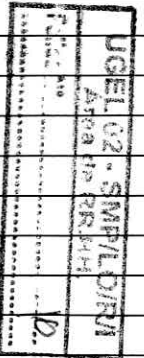 UGEL 02 - SMP/LO/RI
Area de RR.HH
Folio N° ........ 10 ........